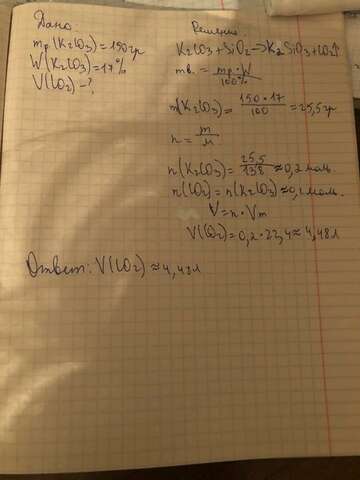 Дано
mр(K2CO3)=150гр
W(K2CO3)=17%
V(CO2)-?
Решение
K2CO3+SiO2->K2SiO3+CO2↑
mв. = mр·W/100%
m(K2CO3)= 150·17/100 =25,5гр
n= m/M
n(K2CO3)= 25,5/138 ≈0,2 моль
n(CO2)=n(K2CO3)≈0,2 моль.
V=n·Vm
V(CO2)=0,2·22,4≈4,48л
Ответ: V(CO2)≈4,48л